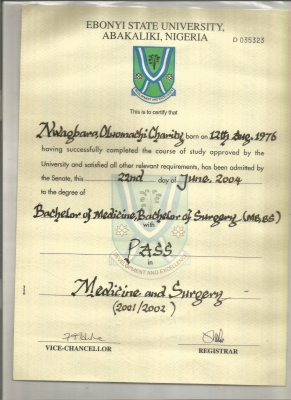 EBONYI STATE UNIVERSITY,
ABAKALIKI, NIGERIA
D 035323
This is to certify that
Nwagbara, Oluomachi Charity born on 12th Aug, 1976
having successfully completed the course of study approved by the
University and satisfied all other relevant requirements, has been admitted by
the Senate, this 22nd day of June, 2004
to the degree of
Bachelor of Medicine, Bachelor of Surgery (MB, BS)
with
PASS
in
DEVELOPMENT AND EXCELLENCE
Medicine and Surgery
(2001/2002)
VICE-CHANCELLOR
REGISTRAR